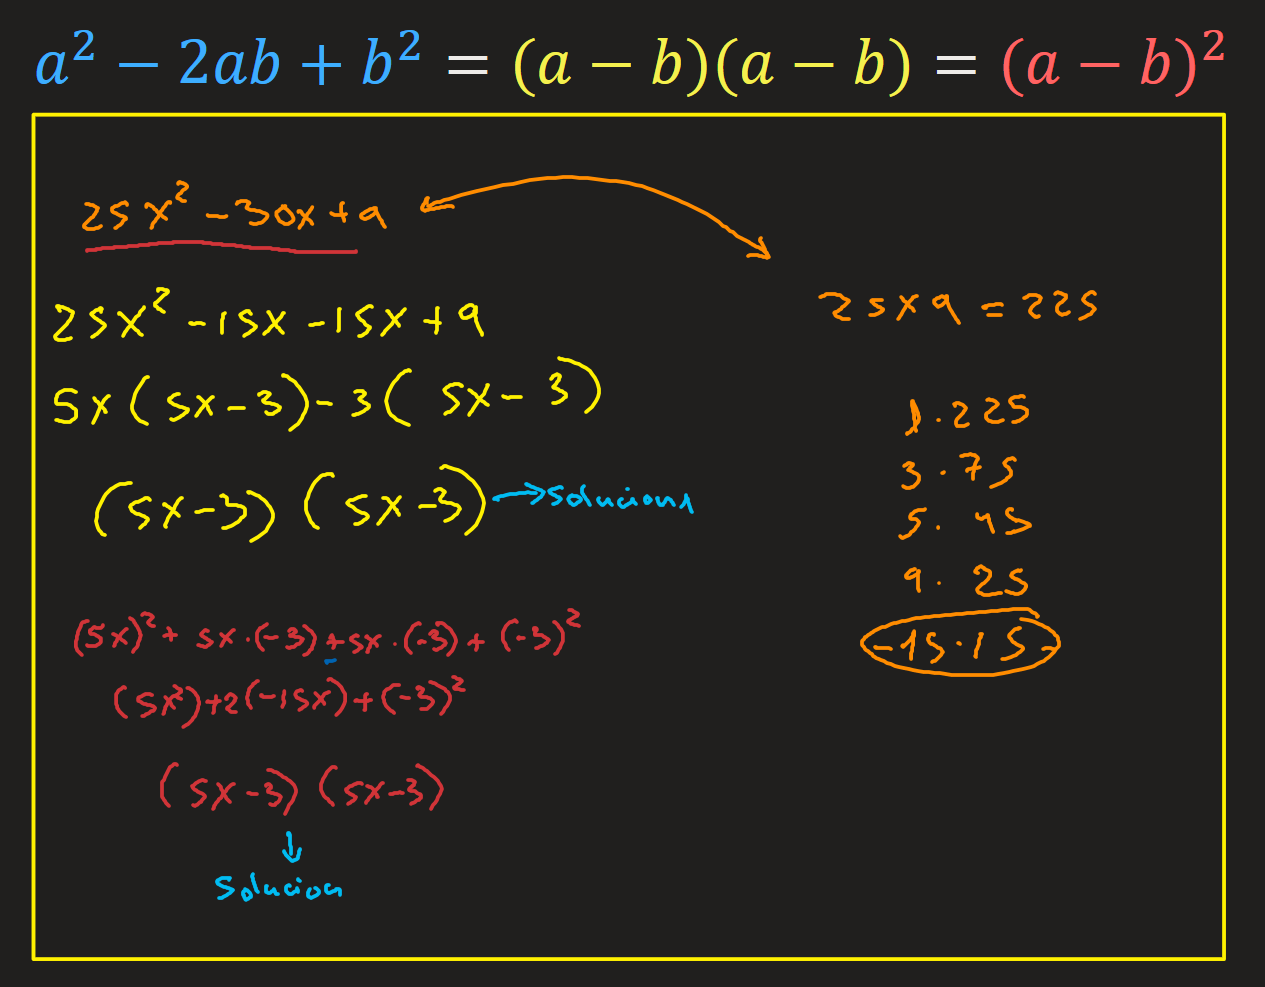 a² − 2ab + b² = (a − b)(a − b) = (a − b)²
25x² - 30x + 9
25x² - 15x - 15x + 9
5x (5x - 3) - 3 (5x - 3)
(5x - 3) (5x - 3) → solucion
(5x)² + 5x · (-3) + 5x · (-3) + (-3)²
(5x²) + 2 (-15x) + (-3)²
(5x - 3) (5x - 3)
↓
Solucion
25 x 9 = 225
1 · 225
3 · 75
5 · 45
9 · 25
-15 · 15 -